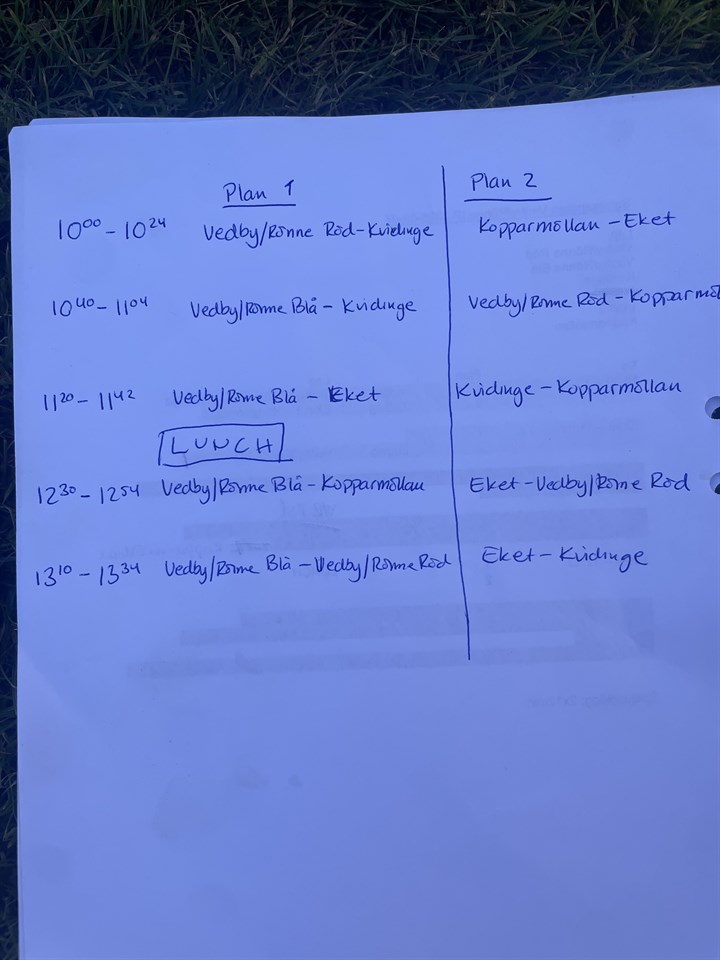 Plan 1 Plan 2
10⁰⁰ - 10²⁴ Vedby/Rönne Röd - Kvidinge Kopparmöllan - Eket
10⁴⁰ - 11⁰⁴ Vedby/Rönne Blå - Kvidinge Vedby/Rönne Röd - Kopparmöl
11²⁰ - 11⁴² Vedby/Rönne Blå - Eket Kvidinge - Kopparmöllan
LUNCH
12³⁰ - 12⁵⁴ Vedby/Rönne Blå - Kopparmöllan Eket - Vedby/Rönne Röd
13¹⁰ - 13³⁴ Vedby/Rönne Blå - Vedby/Rönne Röd Eket - Kvidinge